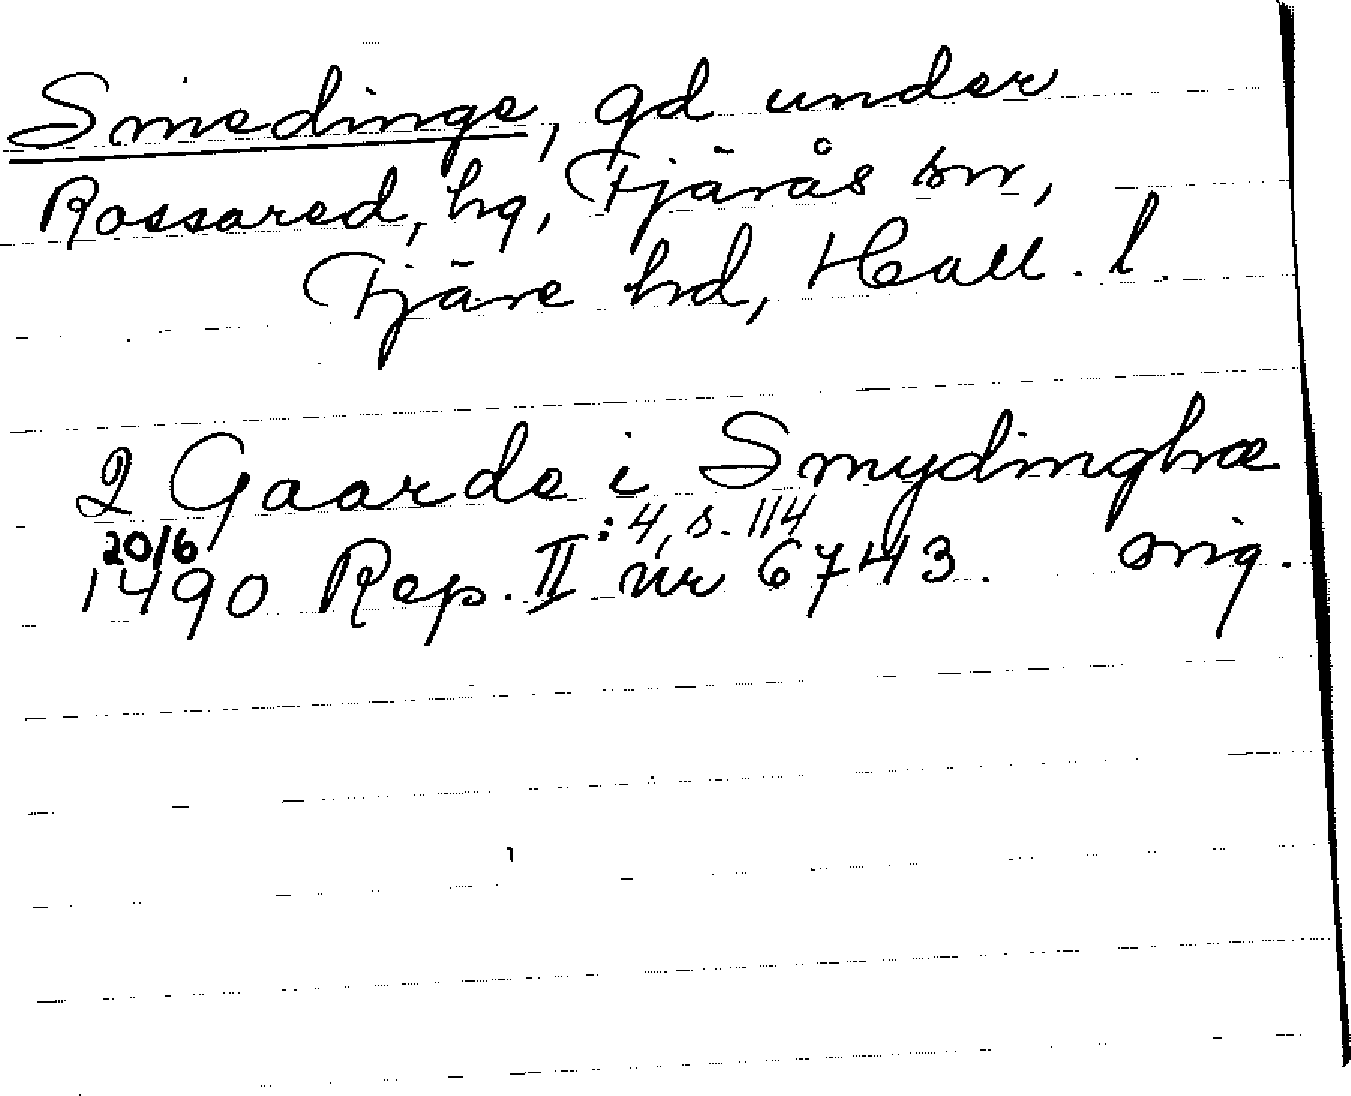 Smedinge, gd under
Rossared, hg, Fjärås sn,
Fjäre hd, Hall. l.
2 Gaarde i Smydinghæ
20/6 :4, s. 114
1490 Rep. II nr 6743. orig.